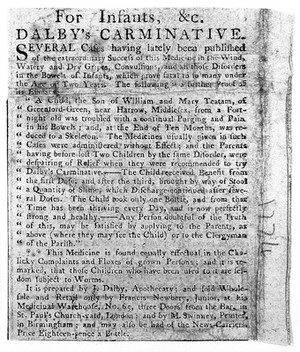 For Infants, &c.
DALBY's CARMINATIVE.
SEVERAL Cases having lately been published
of the extraordinary Success of this Medicine in the Wind,
Watery and Dry Gripes, Convulsions, and all those Disorders
in the Bowels of Infants, which prove fatal to so many under
the Age of Two Years. The following is a further Proof of
its
" A Child, the Son of William and Mary Teatam, of
Greenford-Green, near Harrow, Middlesex, from a Fort-
night old was troubled with a continual Purging and Pain
in his Bowels; and, at the End of Ten Months, was re-
duced to a Skeleton. The Medicines usually given in such
Cases were administered without Effect; and the Parents
having before lost Two Children by the same Disorder, were
despairing of Relief when they were recommended to try
Dalby's Carminative.——The Child received Benefit from
the first Dose; and after the third, brought by way of Stool
a Quantity of Slime, which Discharge continued after seve-
ral Doses. The Child took only one Bottle, and from that
Time has been thriving every Day, and is now perfectly
strong and healthy.——Any Person doubtful of the Truth
of this, may be satisfied by applying to the Parents, as
above (where they may see the Child) or to the Clergyman
of the Parish."
This Medicine is found equally effectual in the Cho-
licky Complaints and Fluxes of grown Persons; and it is re-
marked, that those Children who have been used to it are sel-
dom subject to Worms.
It is prepared by J. Dalby, Apothecary; and sold Whole-
sale and Retail only by Francis Newbery, junior, at his
Medicinal Warehouse, No. 65, three Doors from the Bar, in
St. Paul's Church-yard, London; and by M. Swinney, Printer,
in Birmingham; and may also be had of the News-Carriers.
Price Eighteen-pence a Bottle.